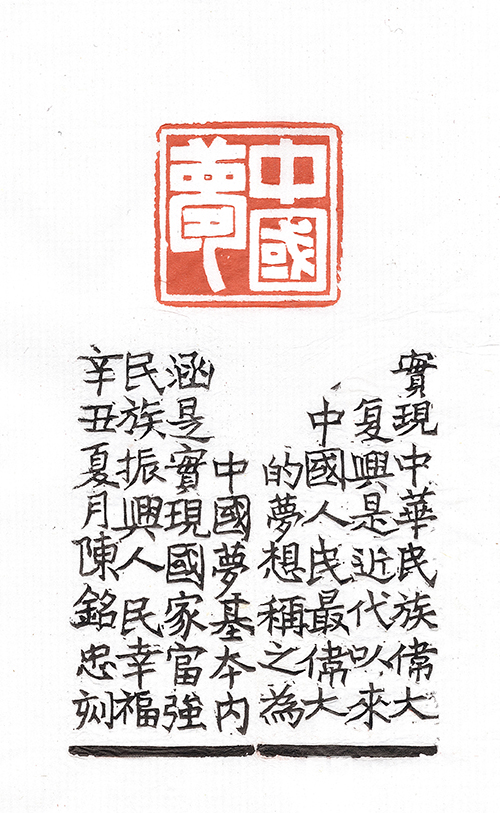 中國
夢
實現中華民族偉大
复興是近代以來
中國人民最偉大
的夢想稱之為
中國夢基本内
涵是實現國家富強
民族振興人民幸福
辛丑夏月陳銘忠刻